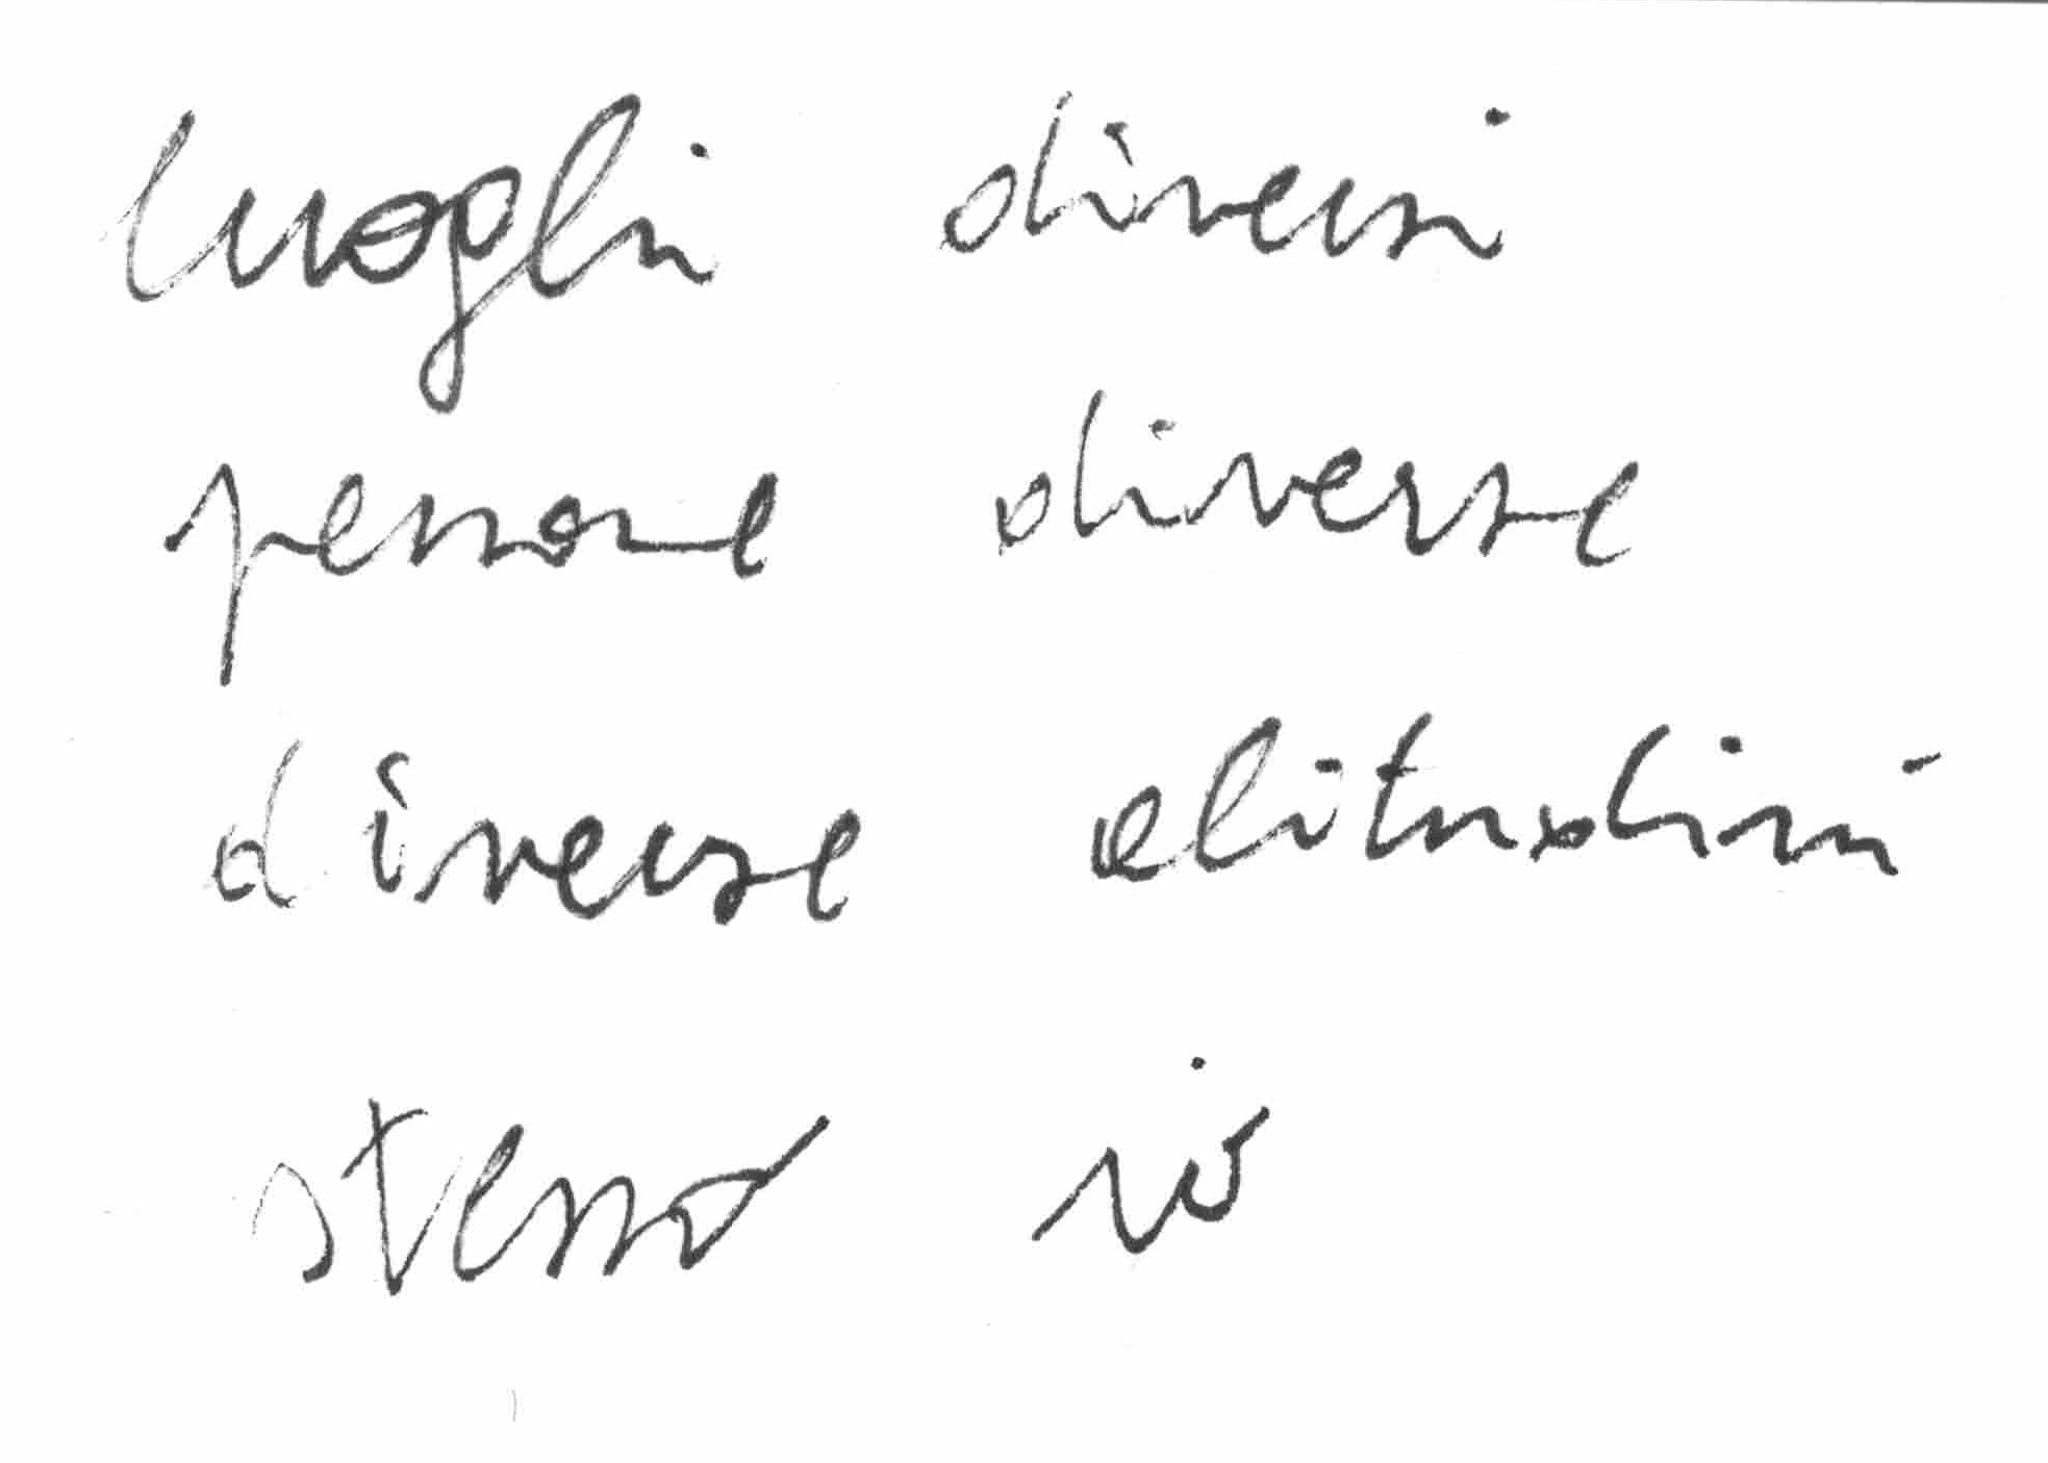 luoghi diversi
persone diverse
diverse abitudini
stesso io